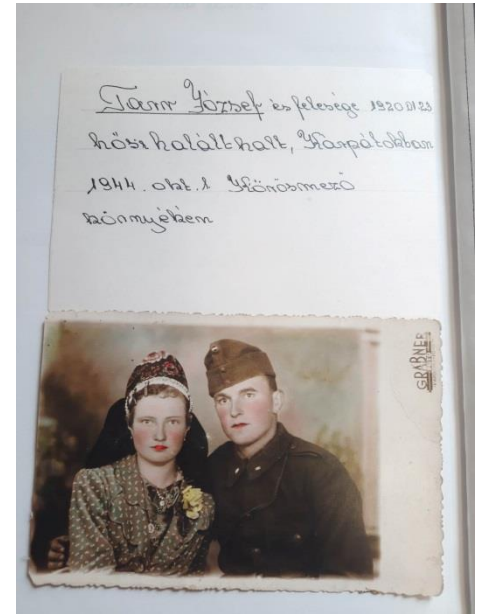 Tarr József és felesége 1920.01.23
hősi halált halt, Kárpátokban
1944. okt. 1 Kőrösmező
környékén
GRABNER